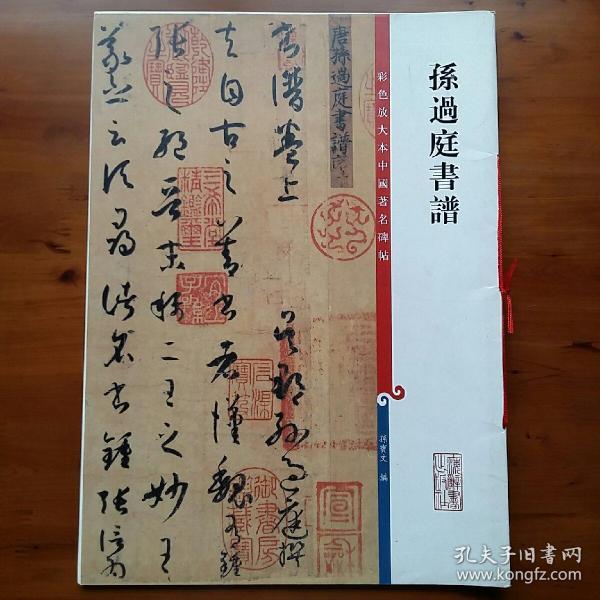 孫過庭書譜
彩色放大本中國著名碑帖
孫寶文 編
上海辭書出版社
唐孫過庭書譜序
書譜卷上 吳郡孫過庭撰
夫自古之善書者漢魏有鍾
張之絕晉末稱二王之妙王
羲之云頃尋諸名書鍾張信為
御書房
孔夫子旧书网
www.kongfz.com